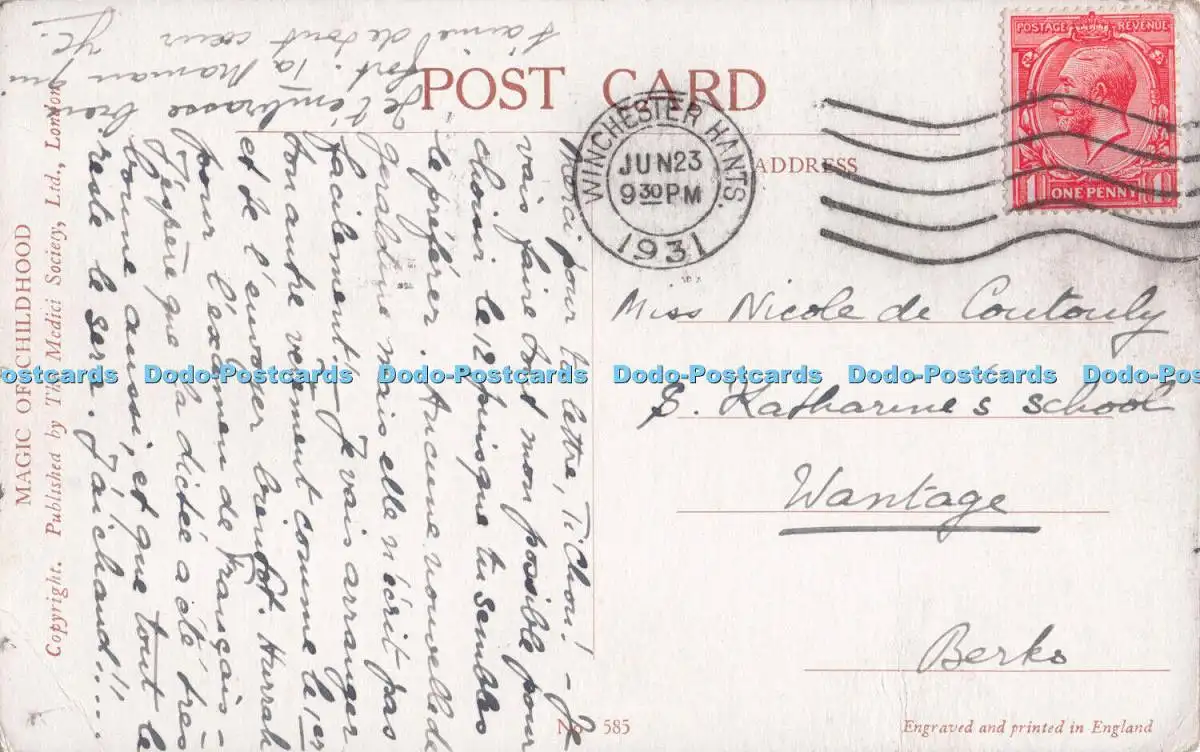 POST CARD
ADDRESS
POSTAGE REVENUE
1 ONE PENNY 1
WINCHESTER HANTS.
JUN 23
9 30 PM
1931
Miss Nicole de Coutouly
S. Katharine's school
Wantage
Berks
Merci pour ta lettre, Ti Chou! - Je
vais faire tout mon possible pour
choisir le 12 puisque tu sembles
le préférer. Aucune nouvelle de
Geraldine mais elle n'écrit pas
facilement! - Je vais arranger
ton autre vêtement comme le 1er
et te l'envoyer bientôt. Hurrah
pour l'examen de Français -
J'espère que la dictée a été très
bonne aussi, et que tout le
reste le sera. J'ai chaud!!...
Je t'embrasse bien
fort. Ta Maman qui
t'aime de tout cœur
MAGIC OF CHILDHOOD
Copyright. Published by The Medici Society, Ltd., London
No. 585
Engraved and printed in England
Dodo-Postcards Dodo-Postcards Dodo-Postcards Dodo-Postcards Dodo-Postcards Dodo-Postcards